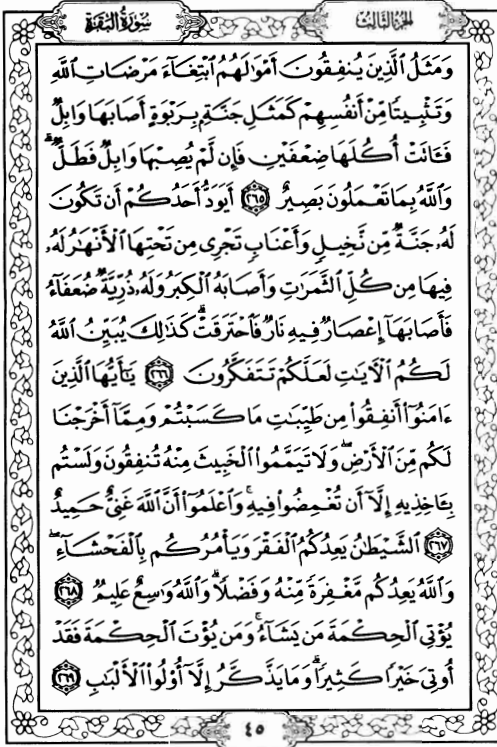 الجزء الثالث
سورة البقرة
وَمَثَلُ الَّذِينَ يُنفِقُونَ أَمْوَالَهُمُ ابْتِغَاءَ مَرْضَاتِ اللَّهِ
وَتَثْبِيتًا مِّنْ أَنفُسِهِمْ كَمَثَلِ جَنَّةٍ بِرَبْوَةٍ أَصَابَهَا وَابِلٌ
فَـَٔاتَتْ أُكُلَهَا ضِعْفَيْنِ فَإِن لَّمْ يُصِبْهَا وَابِلٌ فَطَلٌّ ۗ
وَاللَّهُ بِمَا تَعْمَلُونَ بَصِيرٌ ٢٦٥ أَيَوَدُّ أَحَدُكُمْ أَن تَكُونَ
لَهُۥ جَنَّةٌ مِّن نَّخِيلٍ وَأَعْنَابٍ تَجْرِى مِن تَحْتِهَا الْأَنْهَٰرُ لَهُۥ
فِيهَا مِن كُلِّ الثَّمَرَٰتِ وَأَصَابَهُ الْكِبَرُ وَلَهُۥ ذُرِّيَّةٌ ضُعَفَآءُ
فَأَصَابَهَآ إِعْصَارٌ فِيهِ نَارٌ فَاحْتَرَقَتْ ۗ كَذَٰلِكَ يُبَيِّنُ اللَّهُ
لَكُمُ الْآيَٰتِ لَعَلَّكُمْ تَتَفَكَّرُونَ ٢٦٦ يَٰٓأَيُّهَا الَّذِينَ
ءَامَنُوٓا۟ أَنفِقُوا۟ مِن طَيِّبَٰتِ مَا كَسَبْتُمْ وَمِمَّآ أَخْرَجْنَا
لَكُم مِّنَ الْأَرْضِ ۖ وَلَا تَيَمَّمُوا۟ الْخَبِيثَ مِنْهُ تُنفِقُونَ وَلَسْتُم
بِـَٔاخِذِيهِ إِلَّآ أَن تُغْمِضُوا۟ فِيهِ ۚ وَاعْلَمُوٓا۟ أَنَّ اللَّهَ غَنِىٌّ حَمِيدٌ
٢٦٧ الشَّيْطَٰنُ يَعِدُكُمُ الْفَقْرَ وَيَأْمُرُكُم بِالْفَحْشَآءِ ۖ
وَاللَّهُ يَعِدُكُم مَّغْفِرَةً مِّنْهُ وَفَضْلًا ۗ وَاللَّهُ وَٰسِعٌ عَلِيمٌ ٢٦٨
يُؤْتِى الْحِكْمَةَ مَن يَشَآءُ ۚ وَمَن يُؤْتَ الْحِكْمَةَ فَقَدْ
أُوتِىَ خَيْرًا كَثِيرًا ۗ وَمَا يَذَّكَّرُ إِلَّآ أُو۟لُوا۟ الْأَلْبَٰبِ ٢٦٩
٤٥